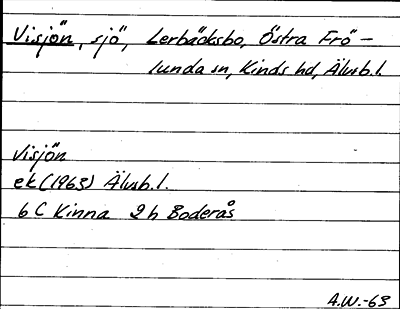 Visjön, sjö, Lerbäcksbo, Östra Frö-
lunda sn, Kinds hd, Älvsb.l.
Visjön
ek (1963) Älvsb.l.
6 C Kinna 2 h Boderås
A.W.-63